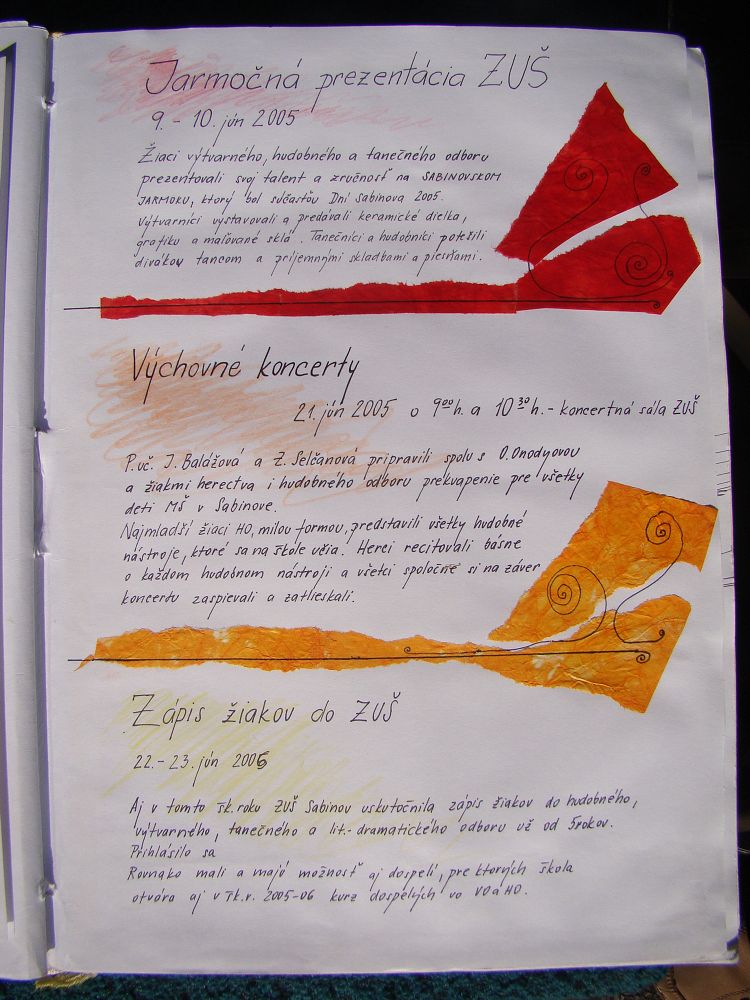 Jarmočná prezentácia ZUŠ
9. - 10. jún 2005
Žiaci výtvarného, hudobného a tanečného odboru
prezentovali svoj talent a zručnosť na SABINOVSKOM
JARMOKU, ktorý bol súčasťou Dní Sabinova 2005.
Výtvarníci vystavovali a predávali keramické dielka,
grafiku a maľované sklá. Tanečníci a hudobníci potešili
divákov tancom a príjemnými skladbami a piesňami.
Výchovné koncerty
21. jún 2005 o 9⁰⁰h. a 10³⁰h. - koncertná sála ZUŠ
P. uč. J. Balážová a Z. Selčanová pripravili spolu s O. Onodyovou
a žiakmi herectva i hudobného odboru prekvapenie pre všetky
deti MŠ v Sabinove.
Najmladší žiaci HO, milou formou, predstavili všetky hudobné
nástroje, ktoré sa na škole učia. Herci recitovali básne
o každom hudobnom nástroji a všetci spoločne si na záver
koncertu zaspievali a zatlieskali.
Zápis žiakov do ZUŠ
22. - 23. jún 2005
Aj v tomto šk. roku ZUŠ Sabinov uskutočnila zápis žiakov do hudobného,
výtvarného, tanečného a lit.- dramatického odboru už od 5rokov.
Prihlásilo sa
Rovnako mali a majú možnosť aj dospelí, pre ktorých škola
otvára aj v šk.r. 2005-06 kurz dospelých vo VO a HO.